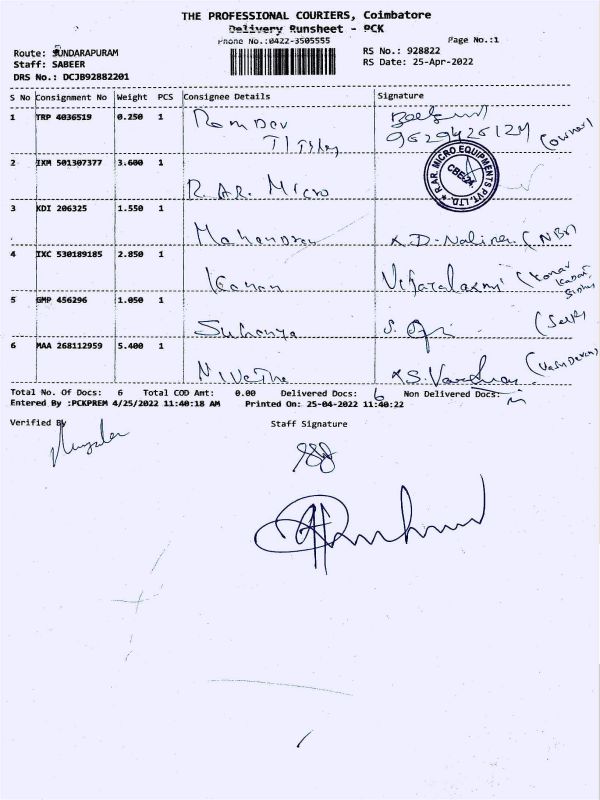 THE PROFESSIONAL COURIERS, Coimbatore
Delivery Runsheet - PCK
Phone No.:0422-3505555
Page No.:1
Route: SUNDARAPURAM
RS No.: 928822
Staff: SABEER
RS Date: 25-Apr-2022
DRS No.: DCJB92882201
S No Consignment No Weight PCS Consignee Details Signature
1 TRP 4036519 0.250 1 Ram Dev
9629426124 (owner)
2 IXM 501307377 3.600 1 R.AR. Micro
R.AR. MICRO EQUIPMENTS PVT. LTD. CBE-24.
3 KDI 206325 1.550 1 Mahendran
(NBr)
4 IXC 530189185 2.850 1 Kannan Vijayalaxmi
5 GMP 456296 1.050 1 Suhanya (Self)
6 MAA 268112959 5.400 1 Nivetha
Total No. Of Docs: 6 Total COD Amt: 0.00 Delivered Docs: 6 Non Delivered Docs:
Entered By :PCKPREM 4/25/2022 11:40:18 AM Printed On: 25-04-2022 11:40:22
Verified By
Staff Signature